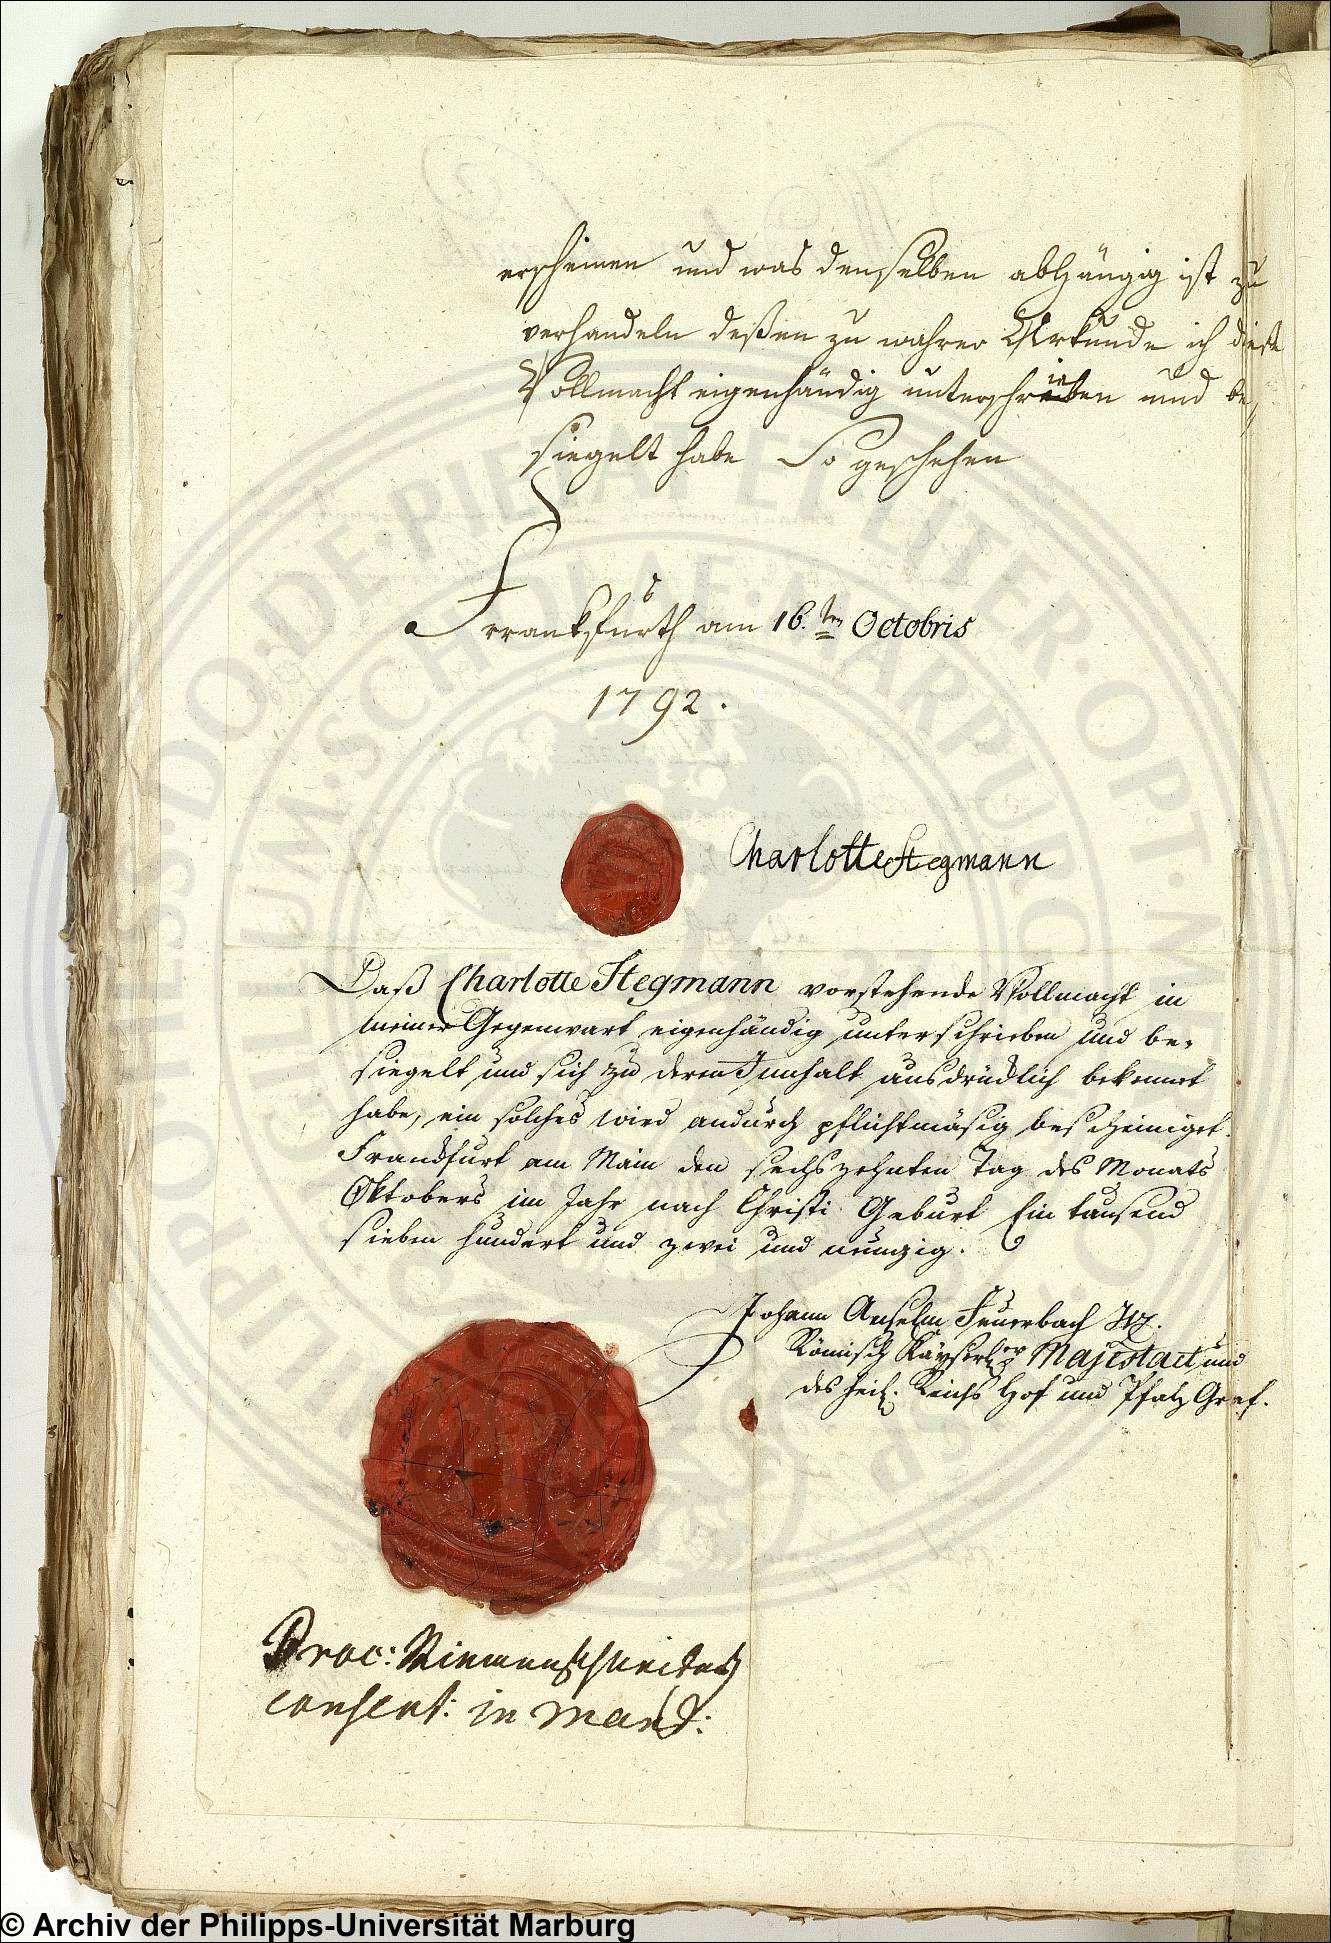 erscheinen und was denselben abhängig ist zu
verhandeln deßen zu wahrer Urkunde ich diese
Vollmacht eigenhändig unterschrieben und be„
siegelt habe So geschehen
Franckfurth am 16.ten Octobris
1792.
Charlotte Stegmann
Daß Charlotte Stegmann vorstehende Vollmacht in
meiner Gegenwart eigenhändig unterschrieben und be„
siegelt und sich zu deren Innhalt ausdrücklich bekennet
habe, ein solches wird andurch pflichtmäsig bescheiniget.
Franckfurt am Main den sechszehnten Tag des Monats
Oktobers im Jahr nach Christi Geburt Ein tausend
sieben hundert und zwei und neunzig.
Johann Anselm Feuerbach
Römisch Kayserl.er Majestaet und
des heil. Reichs Hof und Pfalz Graf.
Proc: Riemenschneider
consent: in mand:
© Archiv der Philipps-Universität Marburg